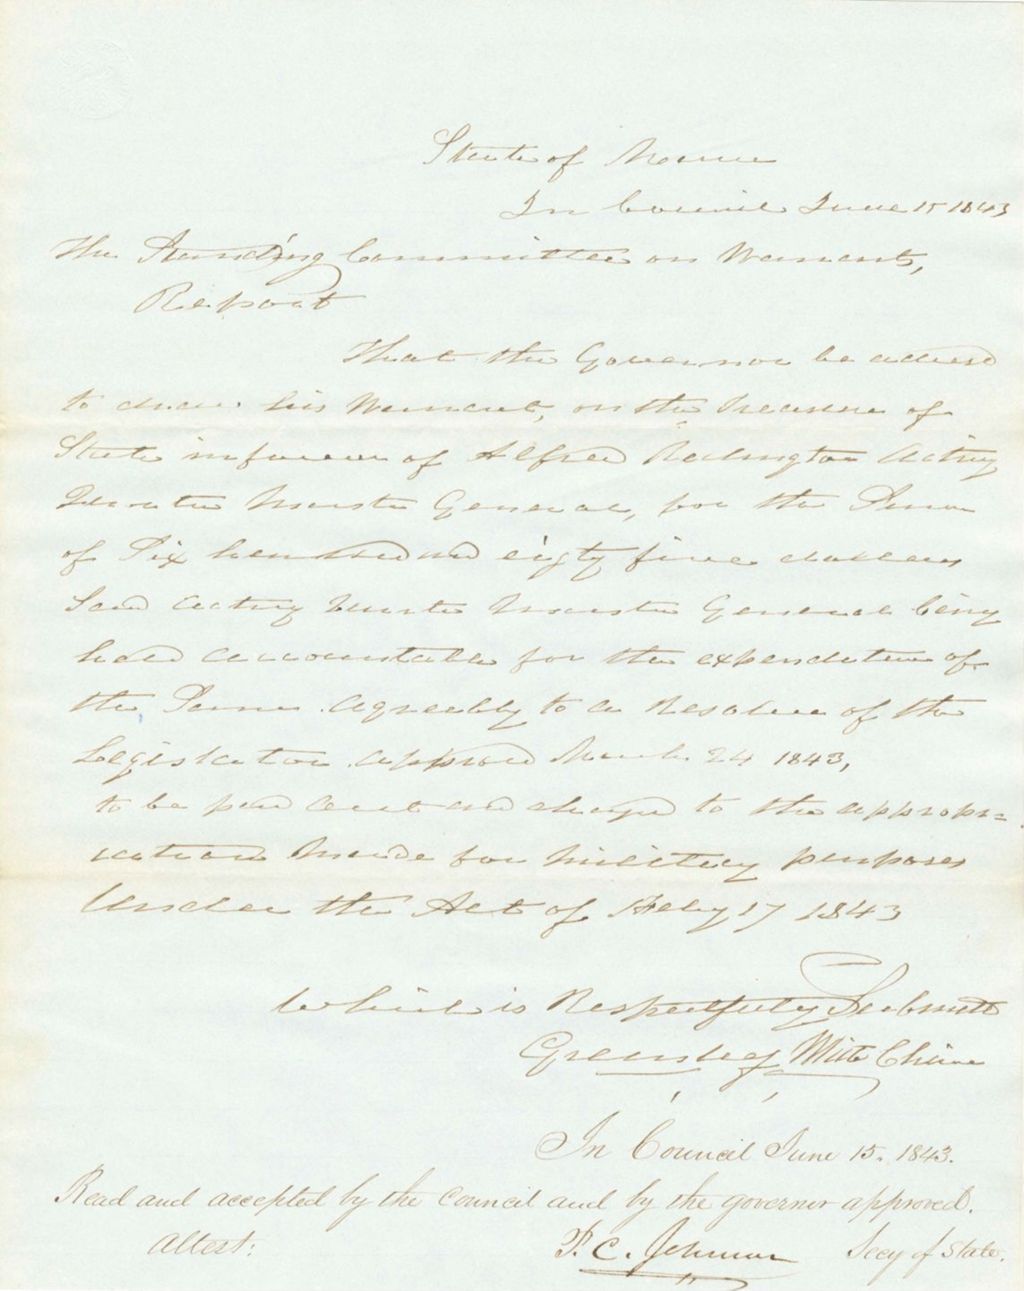 State of Maine
In Council June 15 1843
The Standing Committee on Warrants,
Report
That the Governor be advised
to draw his Warrant, on the Treasure of
State in favour of Alfred Redington Acting
Quarter Master General, for the Sum
of Six hundred and eighty five dollars
Said Acting Quarter Master General being
held accountable for the expenditure of
the Same. Agreebly to a Resolve of the
Legislature approved March 24 1843,
to be paid out and charged to the appropri=
ation made for Military purposes
Under the Act of Feby 17 1843
Which is Respectfully Submitted
Greenleaf White Chime
In Council June 15. 1843.
Read and accepted by the Council and by the governor approved.
Attest: P. C. Johnson Secy of State.